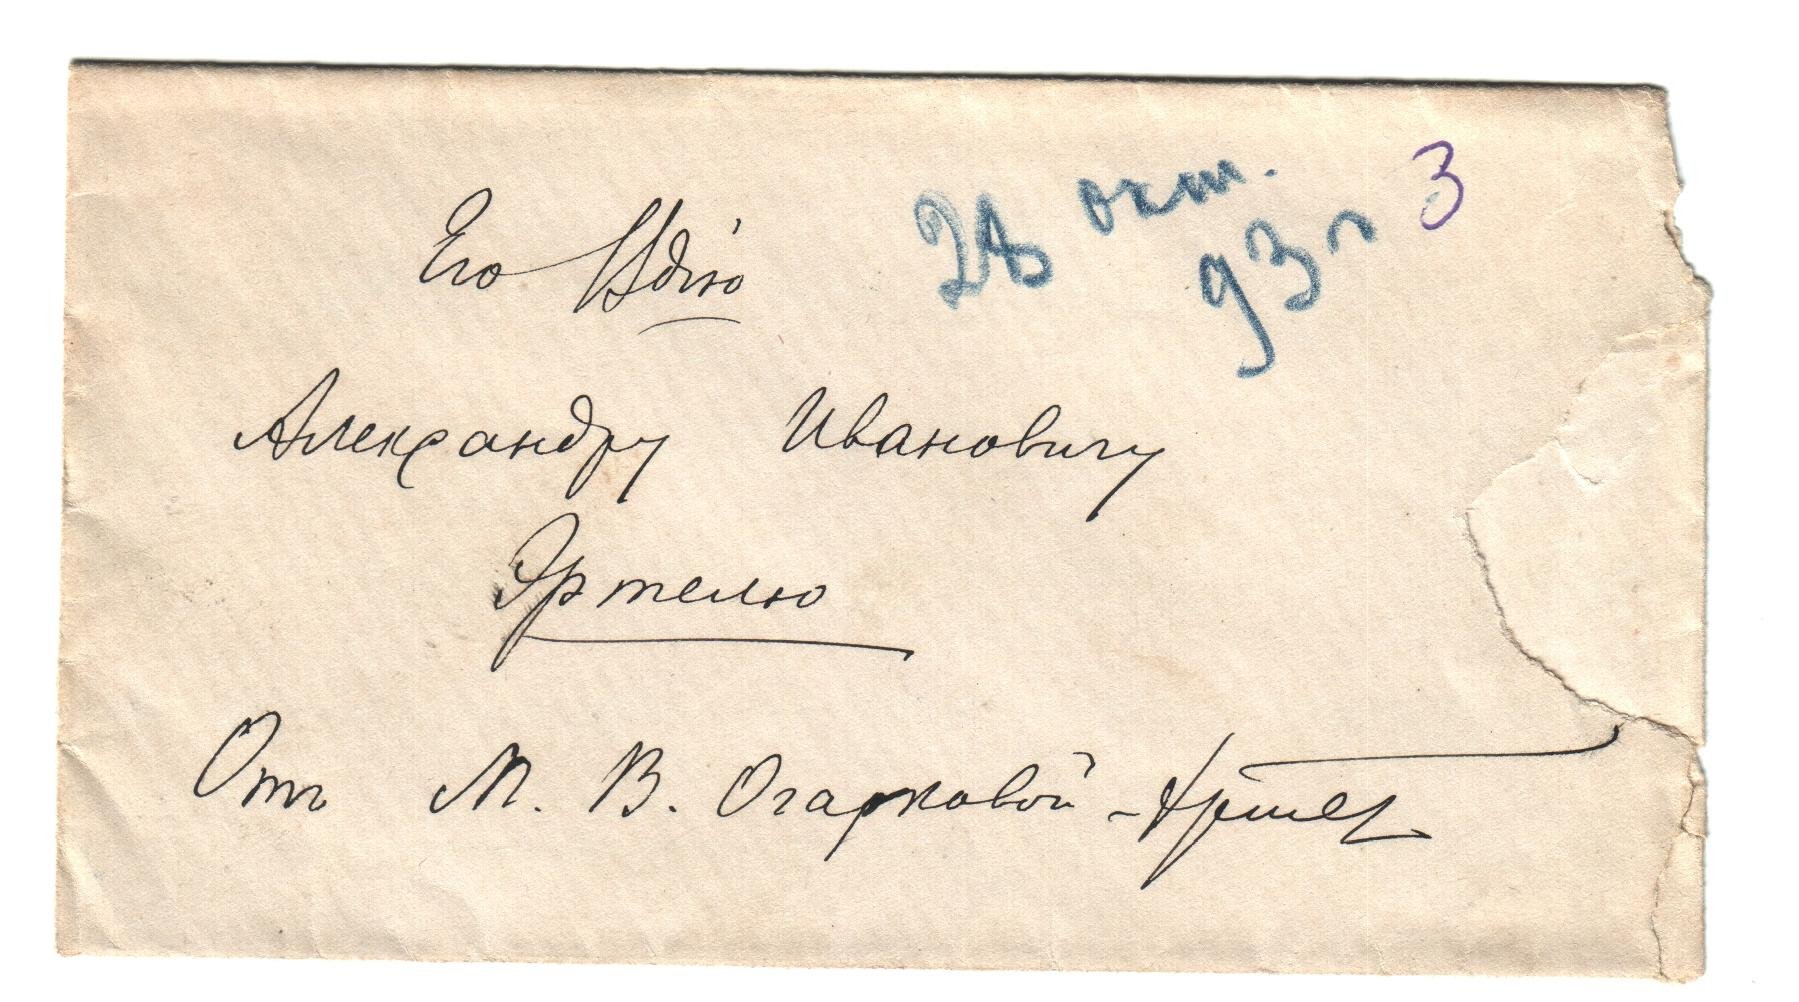 Его Вдію
28 окт.
93 г
3
Александру Ивановичу
Эртелю
Отъ М. В. Огарковой -